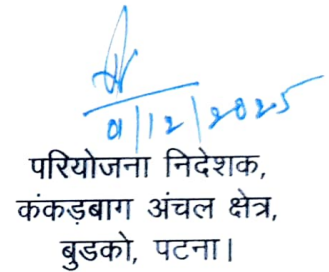 01/12/2025
परियोजना निदेशक,
कंकड़बाग अंचल क्षेत्र,
बुडको, पटना।